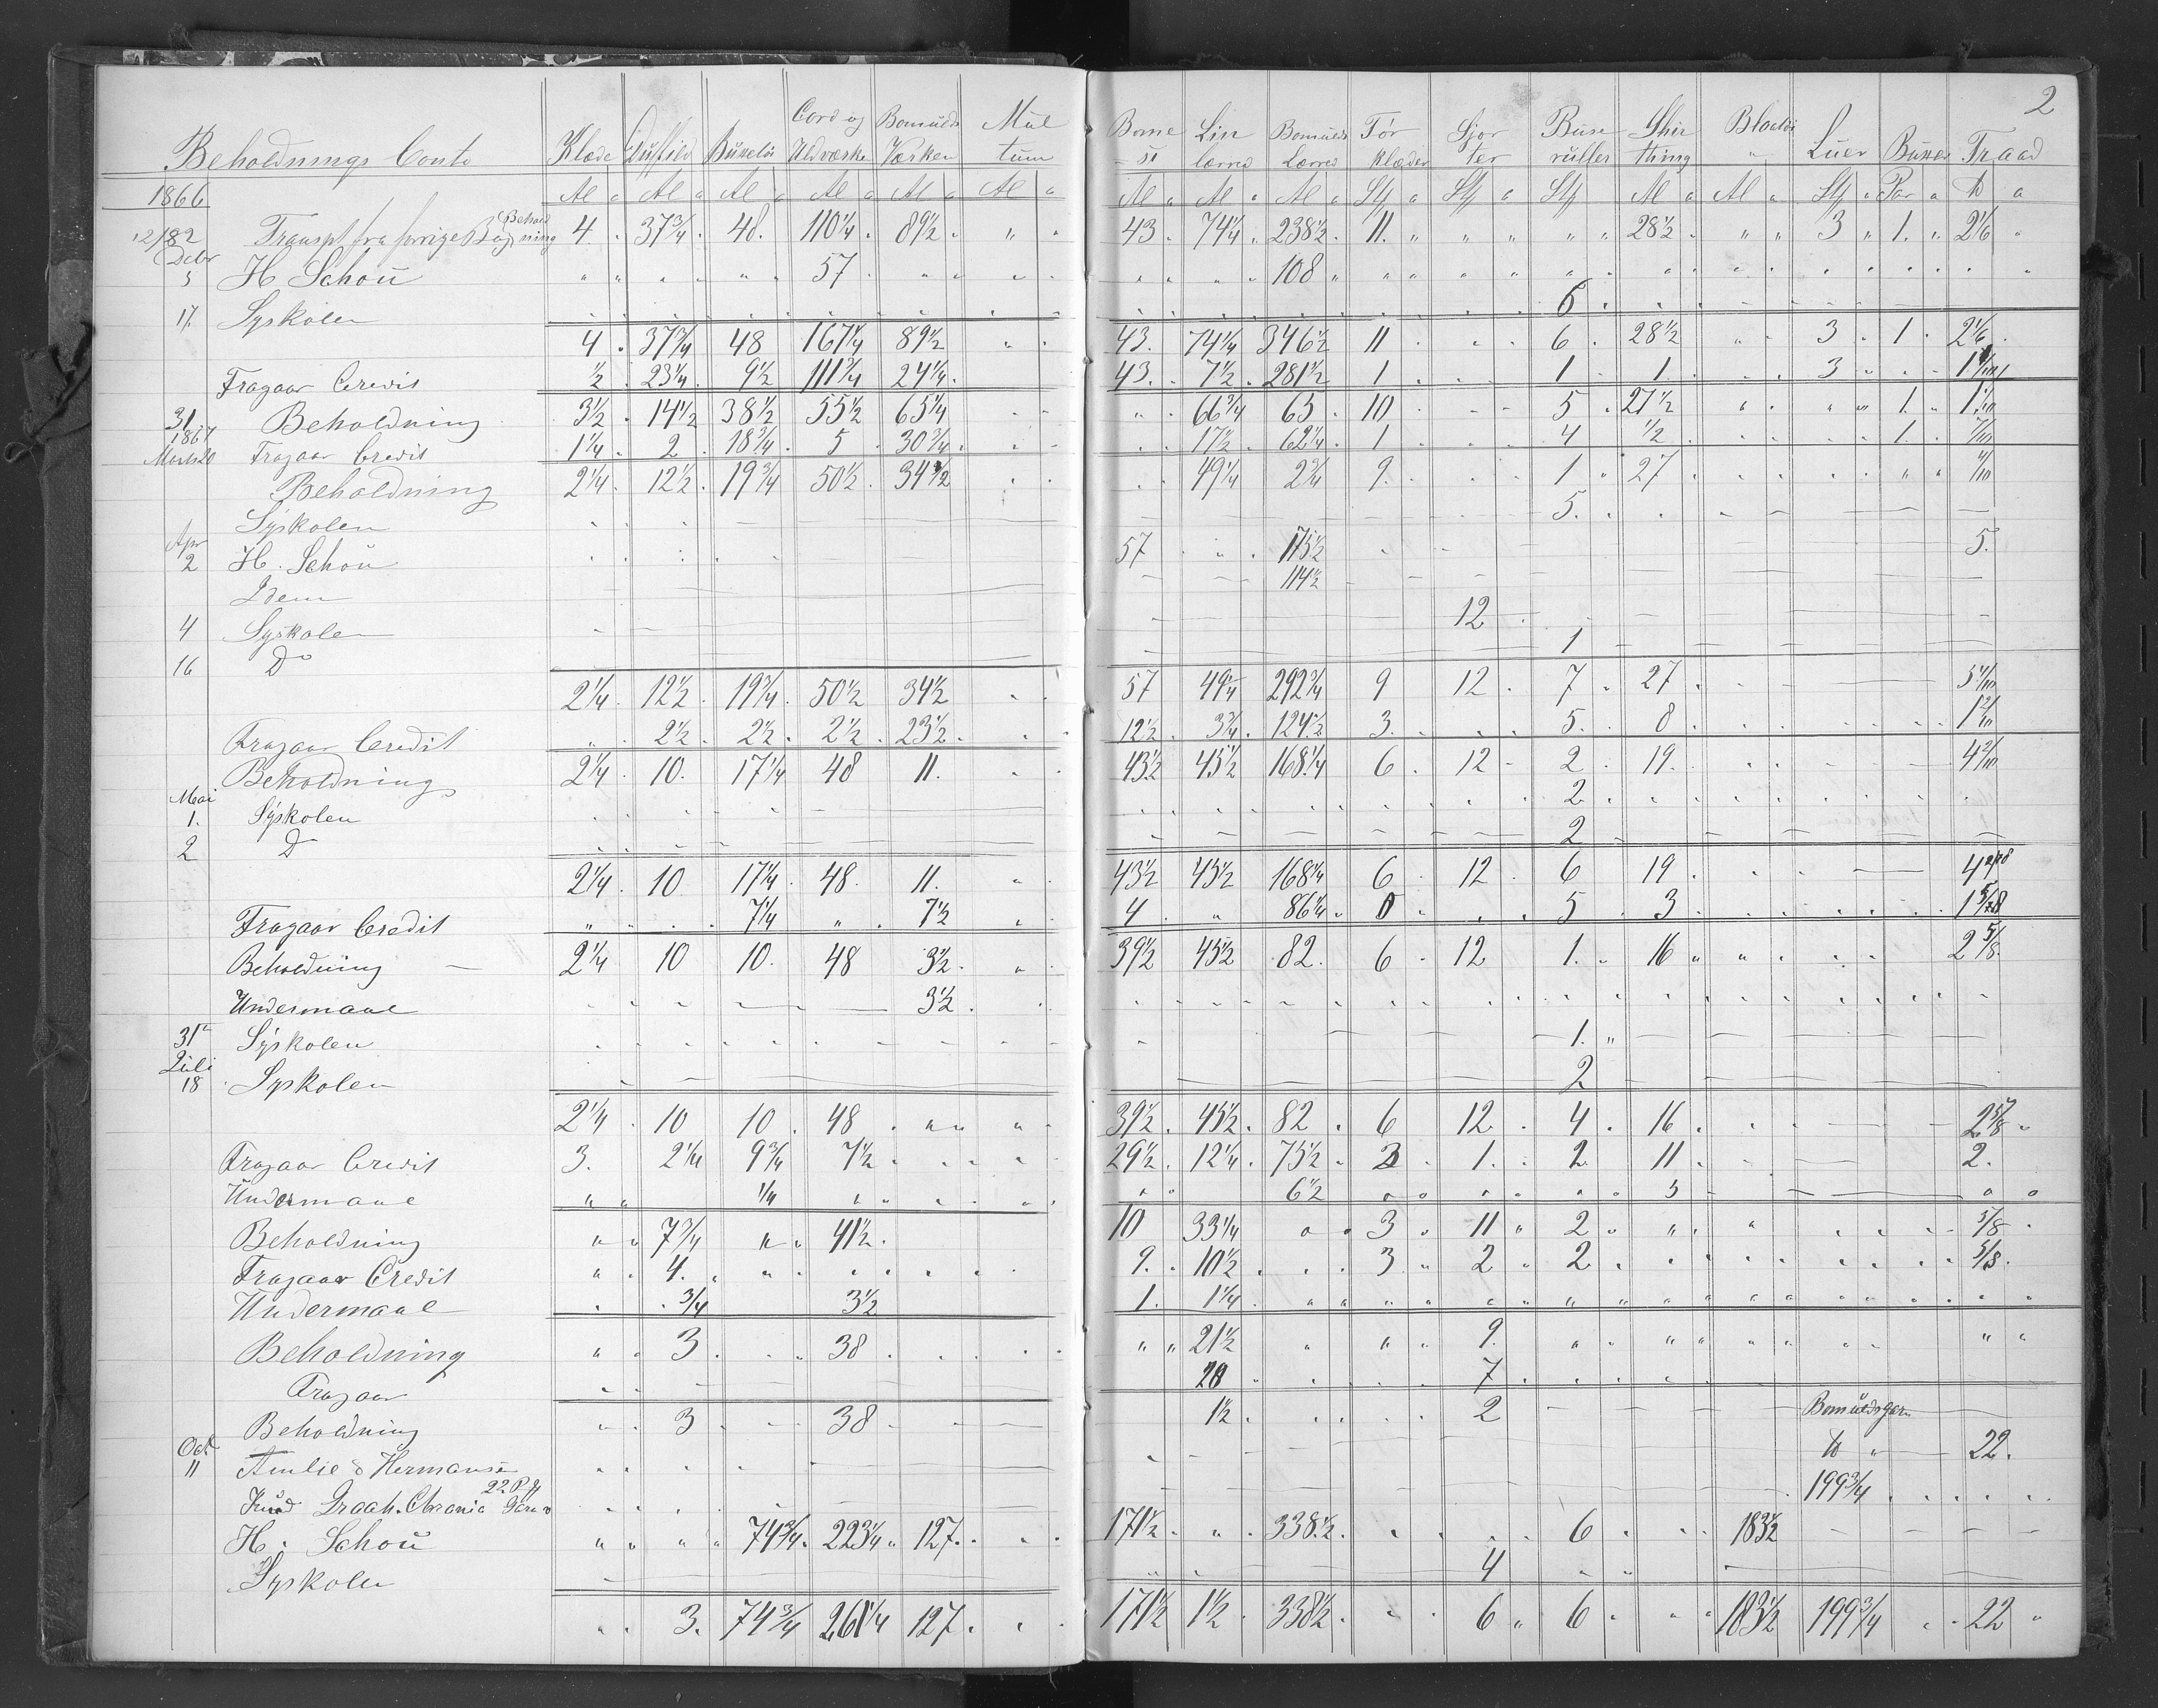 2
Beholdnings Conto Klæde Duffild Buxetöi Cord og Uldværke Bomulds Værken Mul tum Bome si Lin lærred Bomulds Lærred För klæder Sjor ter Buse ruller Shir thing Bloetöi Luer Buxer Traad
1866 Al Al Al Al Al Al Al Al Al Stk Stk Stk Al Al Stk Par ℔
12/82 Transpt fra forrige Bog Behold ning 4 37 3/4 48 110 1/4 89 1/2 " 43 74 1/4 238 1/2 11 " " 28 1/2 " 3 1 2 1/6
Decbr 5 H Schou 57 108
17 Syskolen 6
4 37 3/4 48 167 1/4 89 1/2 43 74 1/4 346 1/2 11 6 28 1/2 3 1 2 1/6
Fragaar Credit 1/2 23 1/4 9 1/2 111 3/4 24 1/4 43 7 1/2 281 1/2 1 1 1 3
31 Beholdning 3 1/2 14 1/2 38 1/2 55 1/2 65 1/4 66 3/4 65 10 5 27 1/2 1
1867
Marts 20 Fragaar Credit 1 1/4 2 18 3/4 5 30 3/4 17 1/2 62 1/4 1 4 1/2 1
Beholdning 2 1/4 12 1/2 19 3/4 50 1/2 34 1/2 49 1/4 2 3/4 9 1 27
Syskolen 5
Apr 2 H. Schou 57 175 1/2 5
Idem 114 1/2
4 Syskolen 12
16 Do 1
2 1/4 12 1/2 19 3/4 50 1/2 34 1/2 57 49 1/4 292 3/4 9 12 7 27
Fragaar Credit 2 1/2 2 1/2 2 1/2 23 1/2 12 1/2 3 3/4 124 1/2 3 5 8
Beholdning 2 1/4 10 17 1/4 48 11 43 1/2 45 1/2 168 1/4 6 12 2 19
Mai 1. Syskolen 2
2 Do 2
2 1/4 10 17 1/4 48 11 43 1/2 45 1/2 168 1/4 6 12 6 19
Fragaar Credit 7 1/4 7 1/2 4 86 1/4 0 5 3
Beholdning 2 1/4 10 10 48 3 1/2 39 1/2 45 1/2 82 6 12 1 16 2 5/8
Undermaal 3 1/2
31 Syskolen 1
Juli 18 Syskolen 2
2 1/4 10 10 48 39 1/2 45 1/2 82 6 12 4 16 2 5/8
Fragaar Credit 3 2 1/4 9 3/4 7 1/2 29 1/2 12 1/4 75 1/2 3 1 2 11 2
Undermaal 1/4 6 1/2 5
Beholdning 7 3/4 41 1/2 10 33 1/4 3 11 2 5/8
Fragaar Credit 4 9 10 1/2 3 2 2 5/8
Undermaal 3/4 3 1/2 1 1 1/4
Beholdning 3 38 21 1/2 9
Fragaar 20 7
Beholdning 3 38 1 1/2 2 Bomuldsgarn
Oct 11 Amlie & Hermansen ℔ 22
Knud Graah. Chrania 22 P Garn 199 3/4
H. Schou 74 3/4 223 1/4 127 171 1/2 338 1/2 6 183 1/2
Syskolen 4
3 74 3/4 261 1/4 127 171 1/2 1 1/2 338 1/2 6 6 183 1/2 199 3/4 22